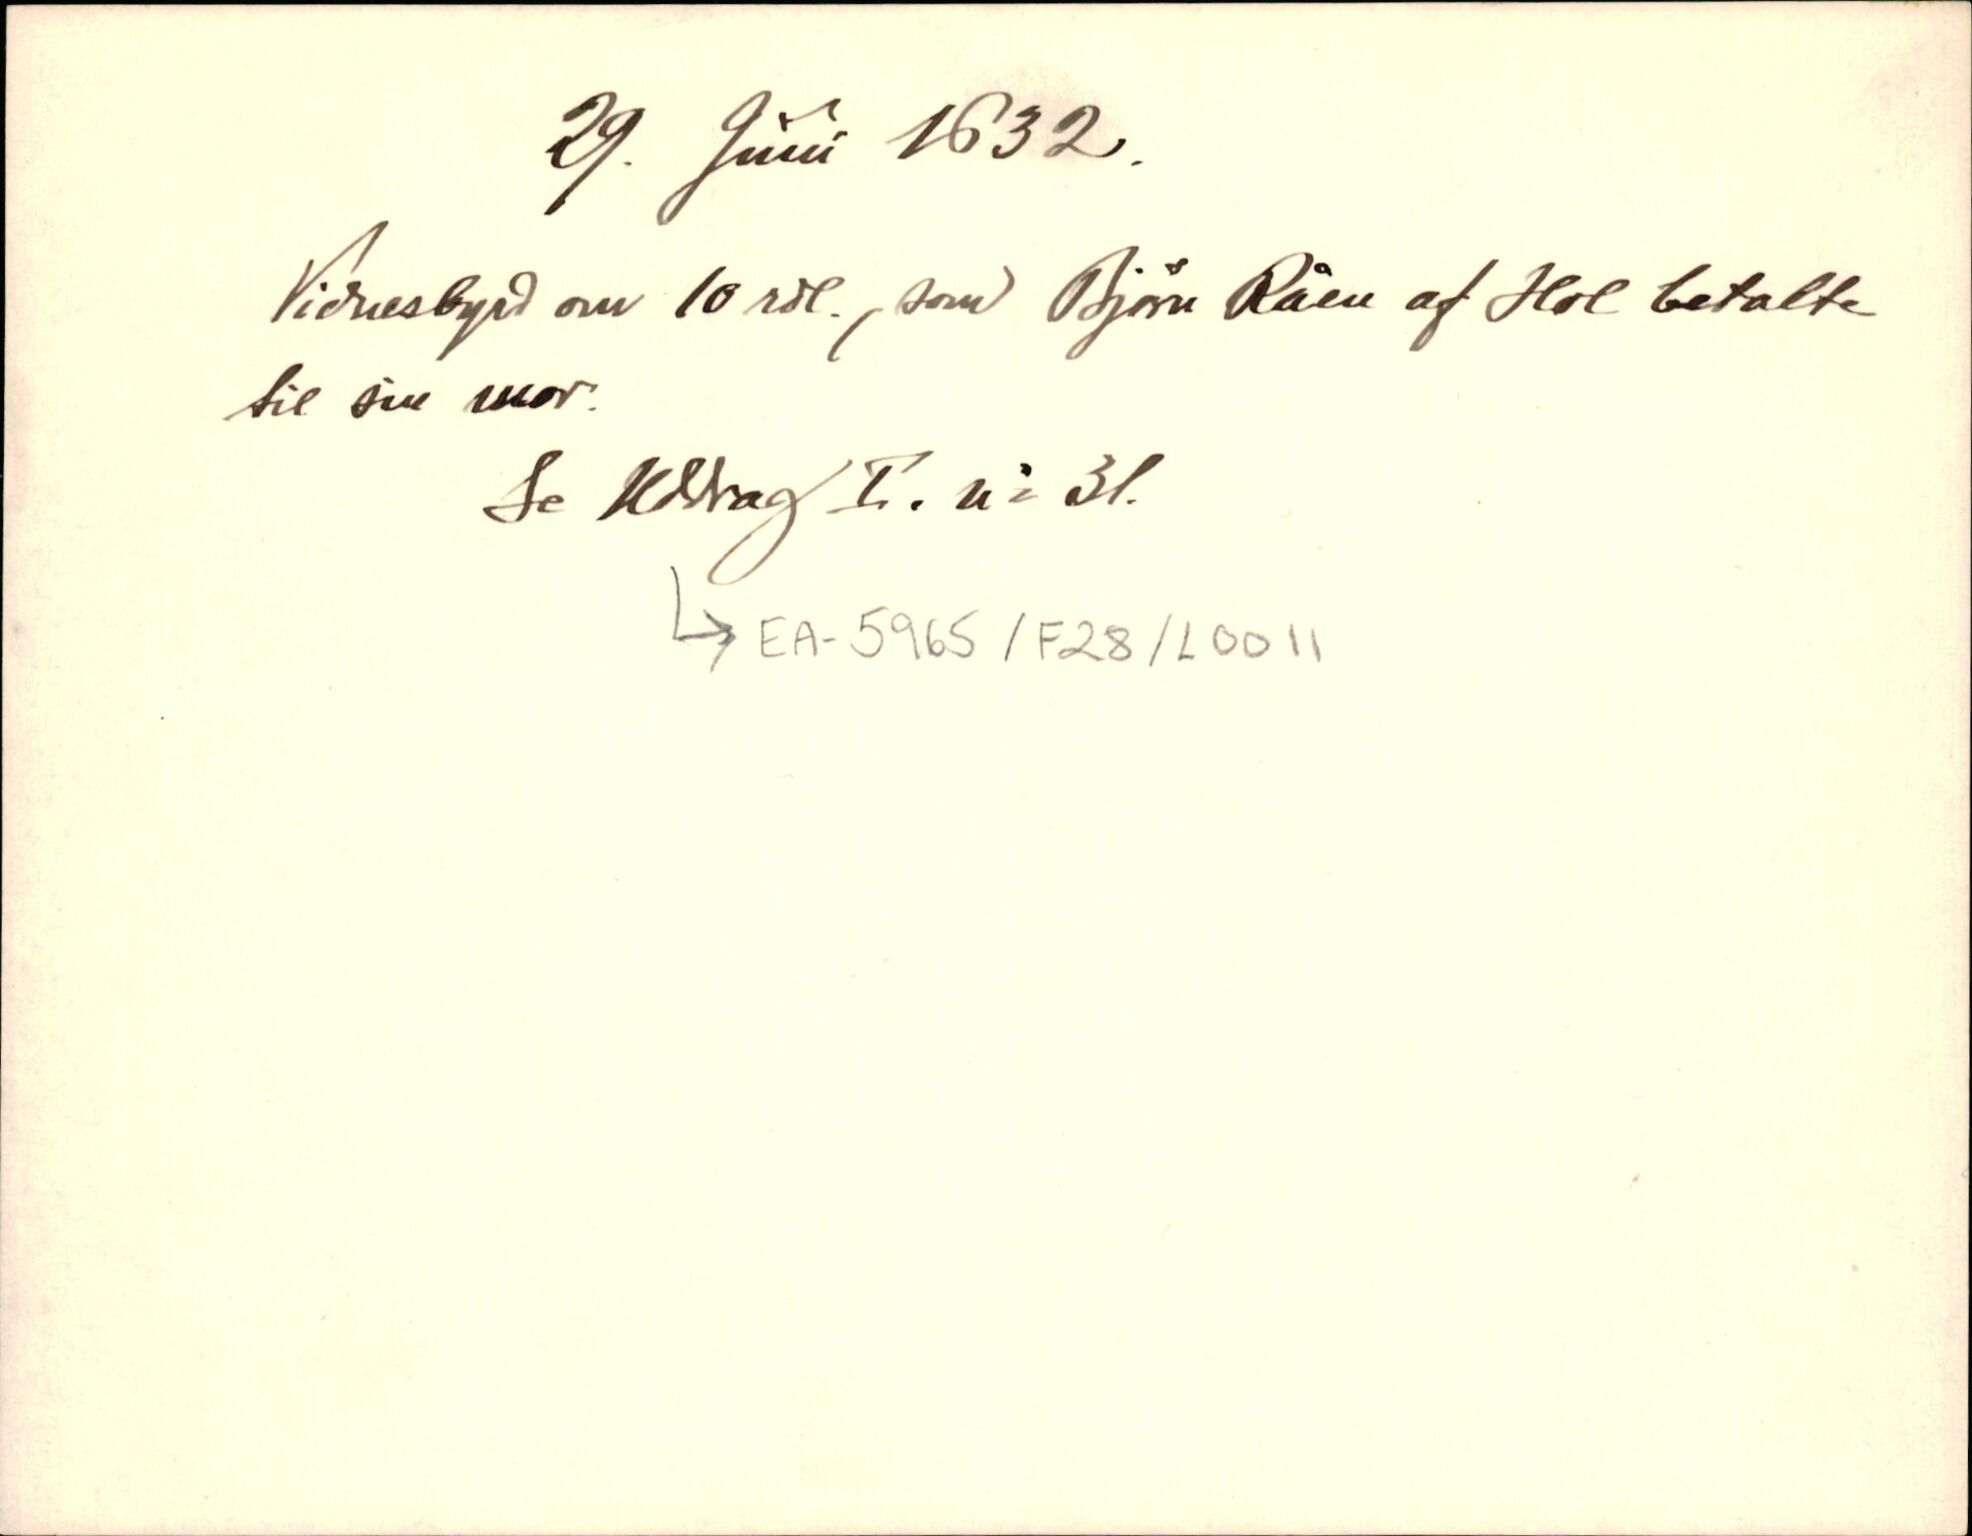 29. Juni 1632.
Vidnesbyrd om 10 rdl., som Bjørn Råen af Hol betalte
til sin mor.
Se Uddrag I. nº 31.
↳ EA-5965/F28/L0011